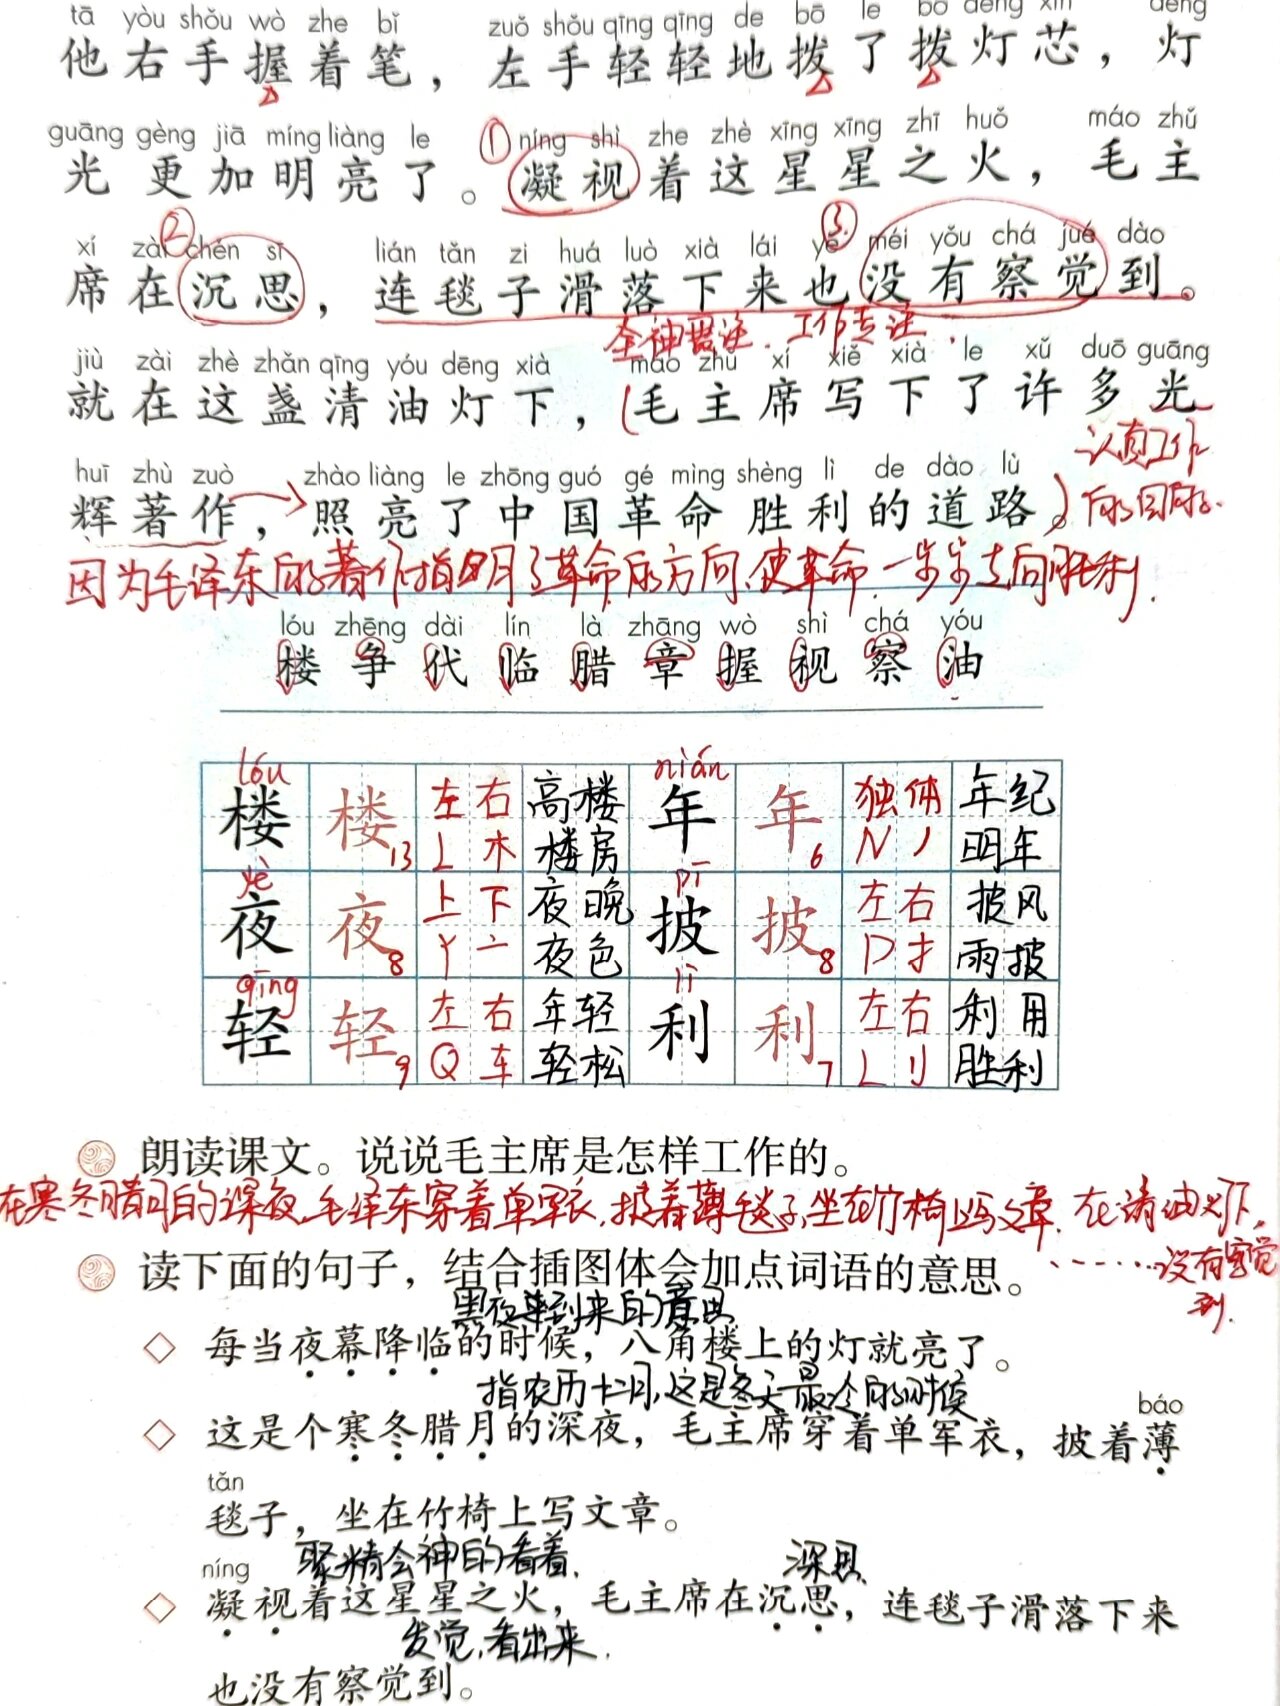 tā yòu shǒu wò zhe bǐ zuǒ shǒu qīng qīng de bō le bō dēng xīn dēng
他右手握着笔，左手轻轻地拨了拨灯芯，灯
guāng gèng jiā míng liàng le ① níng shì zhe zhè xīng xīng zhī huǒ máo zhǔ
光更加明亮了。凝视着这星星之火，毛主
xí zài ② chén sī lián tǎn zi huá luò xià lái yě ③ méi yǒu chá jué dào
席在沉思，连毯子滑落下来也没有察觉到。
全神贯注、工作专注
jiù zài zhè zhǎn qīng yóu dēng xià máo zhǔ xí xiě xià le xǔ duō guāng
就在这盏清油灯下，毛主席写下了许多光
认真工作
huī zhù zuò zhào liàng le zhōng guó gé mìng shèng lì de dào lù
辉著作，照亮了中国革命胜利的道路。
的目的.
因为毛泽东的著作指明了革命的方向,使革命一步步走向胜利.
lóu zhēng dài lín là zhāng wò shì chá yóu
楼争代临腊章握视察油
lóu nián
楼 楼 13 左右 高楼 年 年 6 独体 年纪
L 木 楼房 N 丿 明年
yè pī
夜 夜 8 上下 夜晚 披 披 8 左右 披风
Y 亠 夜色 P 扌 雨披
qīng lì
轻 轻 9 左右 年轻 利 利 7 左右 利用
Q 车 轻松 L 刂 胜利
朗读课文。说说毛主席是怎样工作的。
在寒冬腊月的深夜,毛泽东穿着单军衣,披着薄毯子,坐在竹椅上写文章.在清油灯下,
……没有察觉
到.
读下面的句子，结合插图体会加点词语的意思。
黑夜来到来的意思
每当夜幕降临的时候，八角楼上的灯就亮了。
指农历十二月,这是冬天最冷的时候
báo
这是个寒冬腊月的深夜，毛主席穿着单军衣，披着薄
tǎn
毯子，坐在竹椅上写文章。
níng 聚精会神的看着. 深思.
凝视着这星星之火，毛主席在沉思，连毯子滑落下来
发觉,看出来.
也没有察觉到。